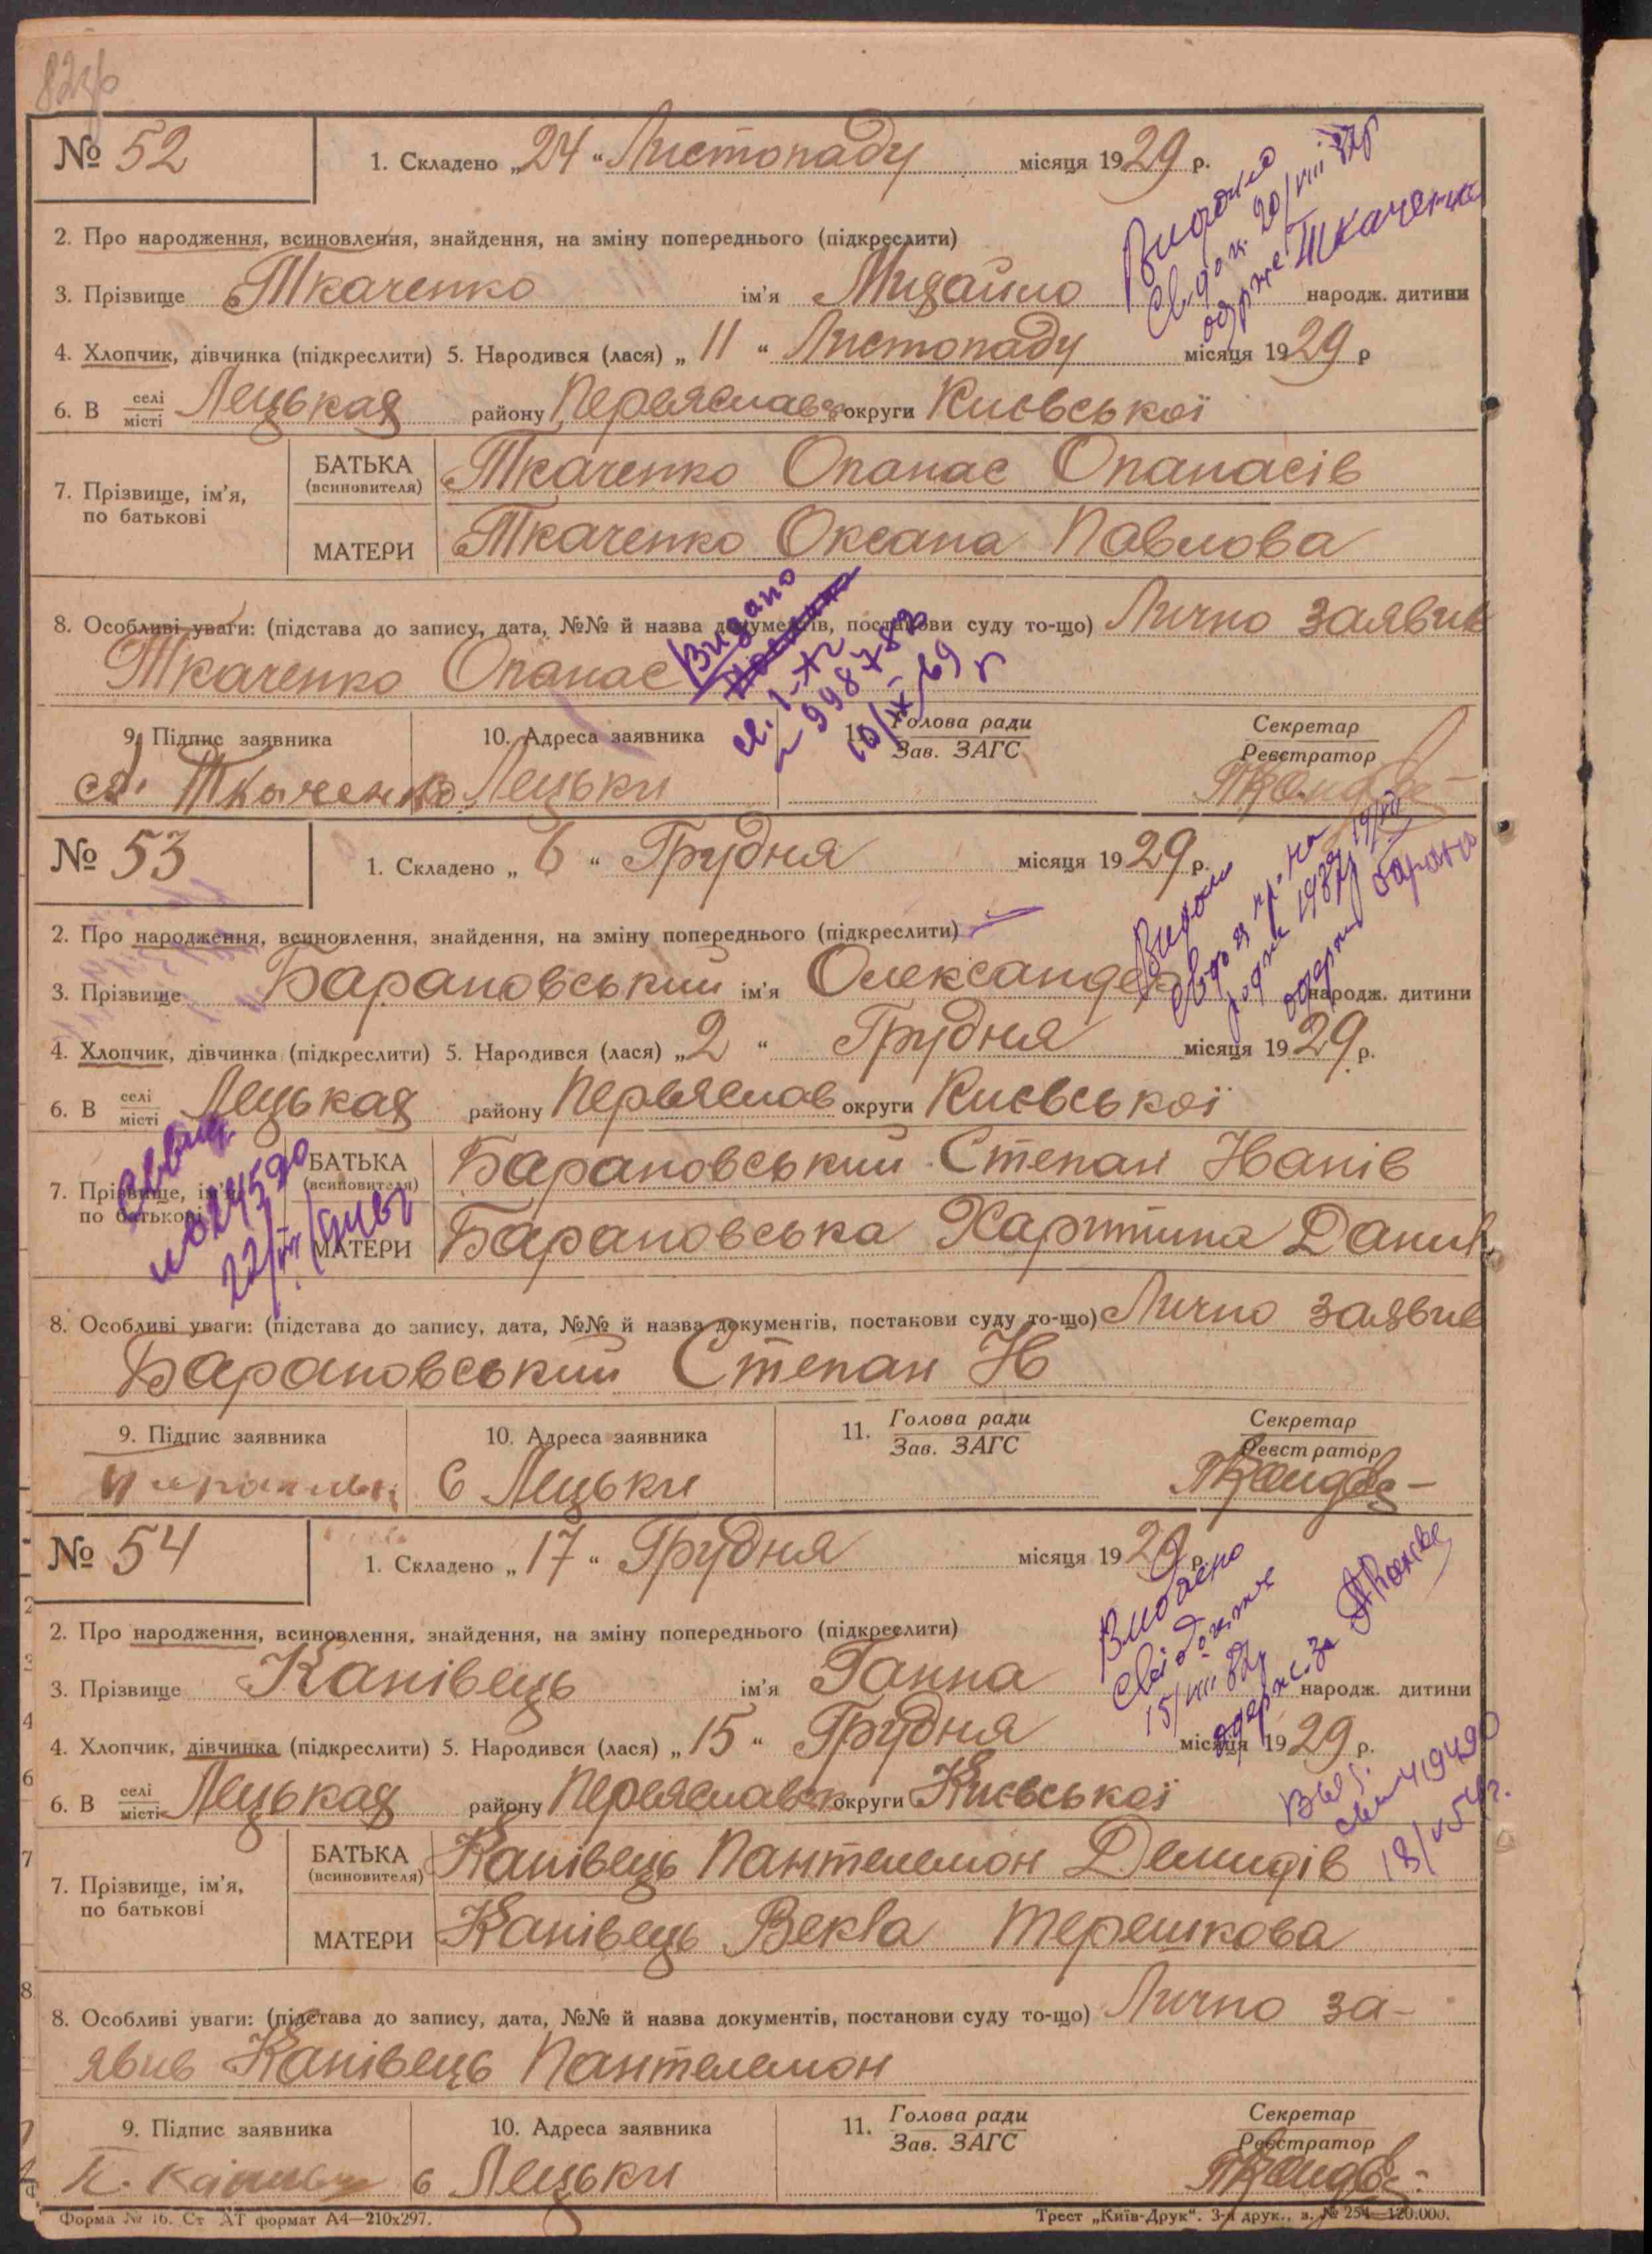 № 52
1. Складено „24“ Листопаду місяця 1929 р.
2. Про народження, всиновлення, знайдення, на зміну попереднього (підкреслити)
3. Прізвище Ткаченко ім'я Михайло народж. дитини
4. Хлопчик, дівчинка (підкреслити) 5. Народився (лася) „11“ Листопаду місяця 1929 р
6. В селі місті Лецьках району Переяслав округи Київської
7. Прізвище, ім'я, по батькові
БАТЬКА (всиновителя) Ткаченко Опанас Опанасів
МАТЕРИ Ткаченко Оксана Павлова
8. Особливі уваги: (підстава до запису, дата, №№ й назва документів, постанови суду то-що) Лично заявив
Ткаченко Опанас
Видано
10/IX/69 г
9. Підпис заявника 10. Адреса заявника 11. Голова ради Зав. ЗАГС Секретар Реєстратор
Ткаченко Лецьки
№ 53
1. Складено „6“ Грудня місяця 1929 р.
2. Про народження, всиновлення, знайдення, на зміну попереднього (підкреслити)
3. Прізвище Барановський ім'я Олександер народж. дитини
4. Хлопчик, дівчинка (підкреслити) 5. Народився (лася) „2“ Грудня місяця 1929 р.
6. В селі місті Лецьках району Переяслав округи Київської
7. Прізвище, ім'я, по батькові
БАТЬКА (всиновителя) Барановський Степан Іванів
МАТЕРИ Барановська Харитина Данил
8. Особливі уваги: (підстава до запису, дата, №№ й назва документів, постанови суду то-що) Лично заявив
Барановський Степан І
9. Підпис заявника 10. Адреса заявника 11. Голова ради Зав. ЗАГС Секретар Реєстратор
с Лецьки
№ 54
1. Складено „17“ Грудня місяця 1929 р.
2. Про народження, всиновлення, знайдення, на зміну попереднього (підкреслити)
3. Прізвище Канівець ім'я Ганна народж. дитини
4. Хлопчик, дівчинка (підкреслити) 5. Народився (лася) „15“ Грудня місяця 1929 р.
6. В селі місті Лецьках району Переяслав округи Київської
7. Прізвище, ім'я, по батькові
БАТЬКА (всиновителя) Канівець Пантелемон Демидів
МАТЕРИ Канівець Векла Терешкова
8. Особливі уваги: (підстава до запису, дата, №№ й назва документів, постанови суду то-що) Лично за-
явив Канівець Пантелемон
9. Підпис заявника 10. Адреса заявника 11. Голова ради Зав. ЗАГС Секретар Реєстратор
с Лецьки
Форма № 16. Ст АТ формат А4—210x297.
Трест „Київ-Друк“. 3-я друк., з. № 254—120.000.